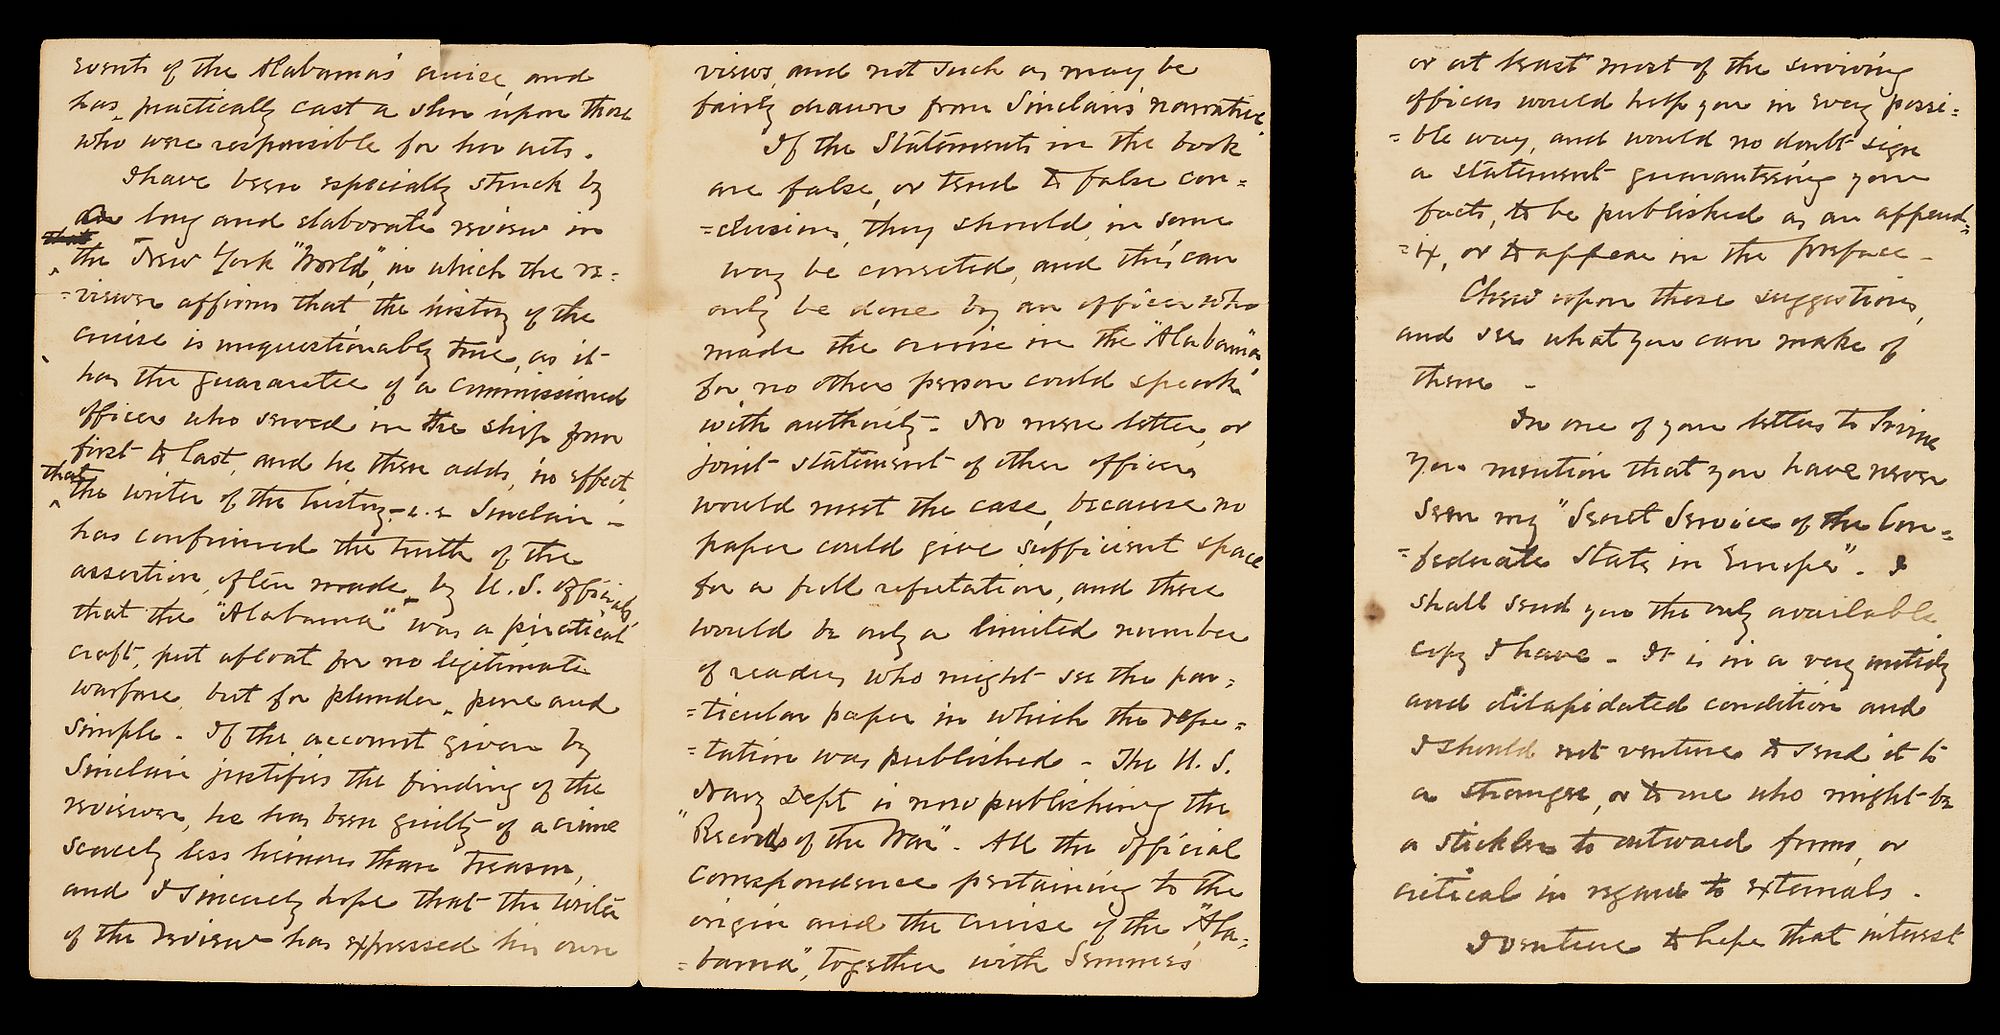 events of the Alabama's cruise, and
has, practically cast a slur upon those
who were responsible for her acts.
I have been especially struck by
a long and elaborate review in
the New York "World," in which the re=
=viewer affirms that the history of the
cruise is unquestionably true, as it
has the guarantee of a commissioned
officer who served in the ship from
first to last, and he then adds, in effect,
that the writer of the history - i.e Sinclair -
has confirmed the truth of the
assertion, often made, by U.S. officials,
that the "Alabama" was a piratical
craft, put afloat for no legitimate
warfare, but for plunder, pure and
simple - If the account given by
Sinclair justifies the finding of the
reviewer, he has been guilty of a crime
scarcely less heinous than treason,
and I sincerely hope that the writer
of the review has expressed his own
views, and not such as may be
fairly drawn from Sinclair's narrative.
If the statements in the book
are false, or tend to false con=
=clusions, they should, in some
way be corrected, and this can
only be done by an officer who
made the cruise in the "Alabama"
for no other person could speak
with authority - No mere letter, or
joint statement of other officers
would meet the case, because no
paper could give sufficient space
for a full refutation, and there
would be only a limited number
of readers who might see the par=
=ticular paper in which the refu=
=tation was published - The U.S.
Navy Dept is now publishing the
"Records of the War". All the official
correspondence pertaining to the
origin and the cruise of the "Ala=
=bama", together with Semmes
or at least most of the surviving
officers would help you in every possi=
=ble way, and would no doubt sign
a statement guaranteeing your
facts, to be published as an append=
=ix, or to appear in the preface -
Chew upon these suggestions,
and see what you can make of
them -
In one of your letters to Irvine
you mention that you have never
seen my "Secret Service of the Con=
=federate States in Europe". I
shall send you the only available
copy I have - It is in a very untidy
and dilapidated condition and
I should not venture to send it to
a stranger, or to one who might be
a stickler to outward forms, or
critical in regard to externals -
I venture to hope that interest